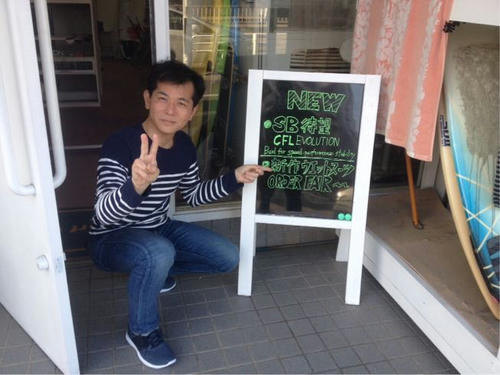 NEW
SB待望
CFL EVOLUTION
Best for speed performance stability
新作ウェットスーツ
ORDER FAIR